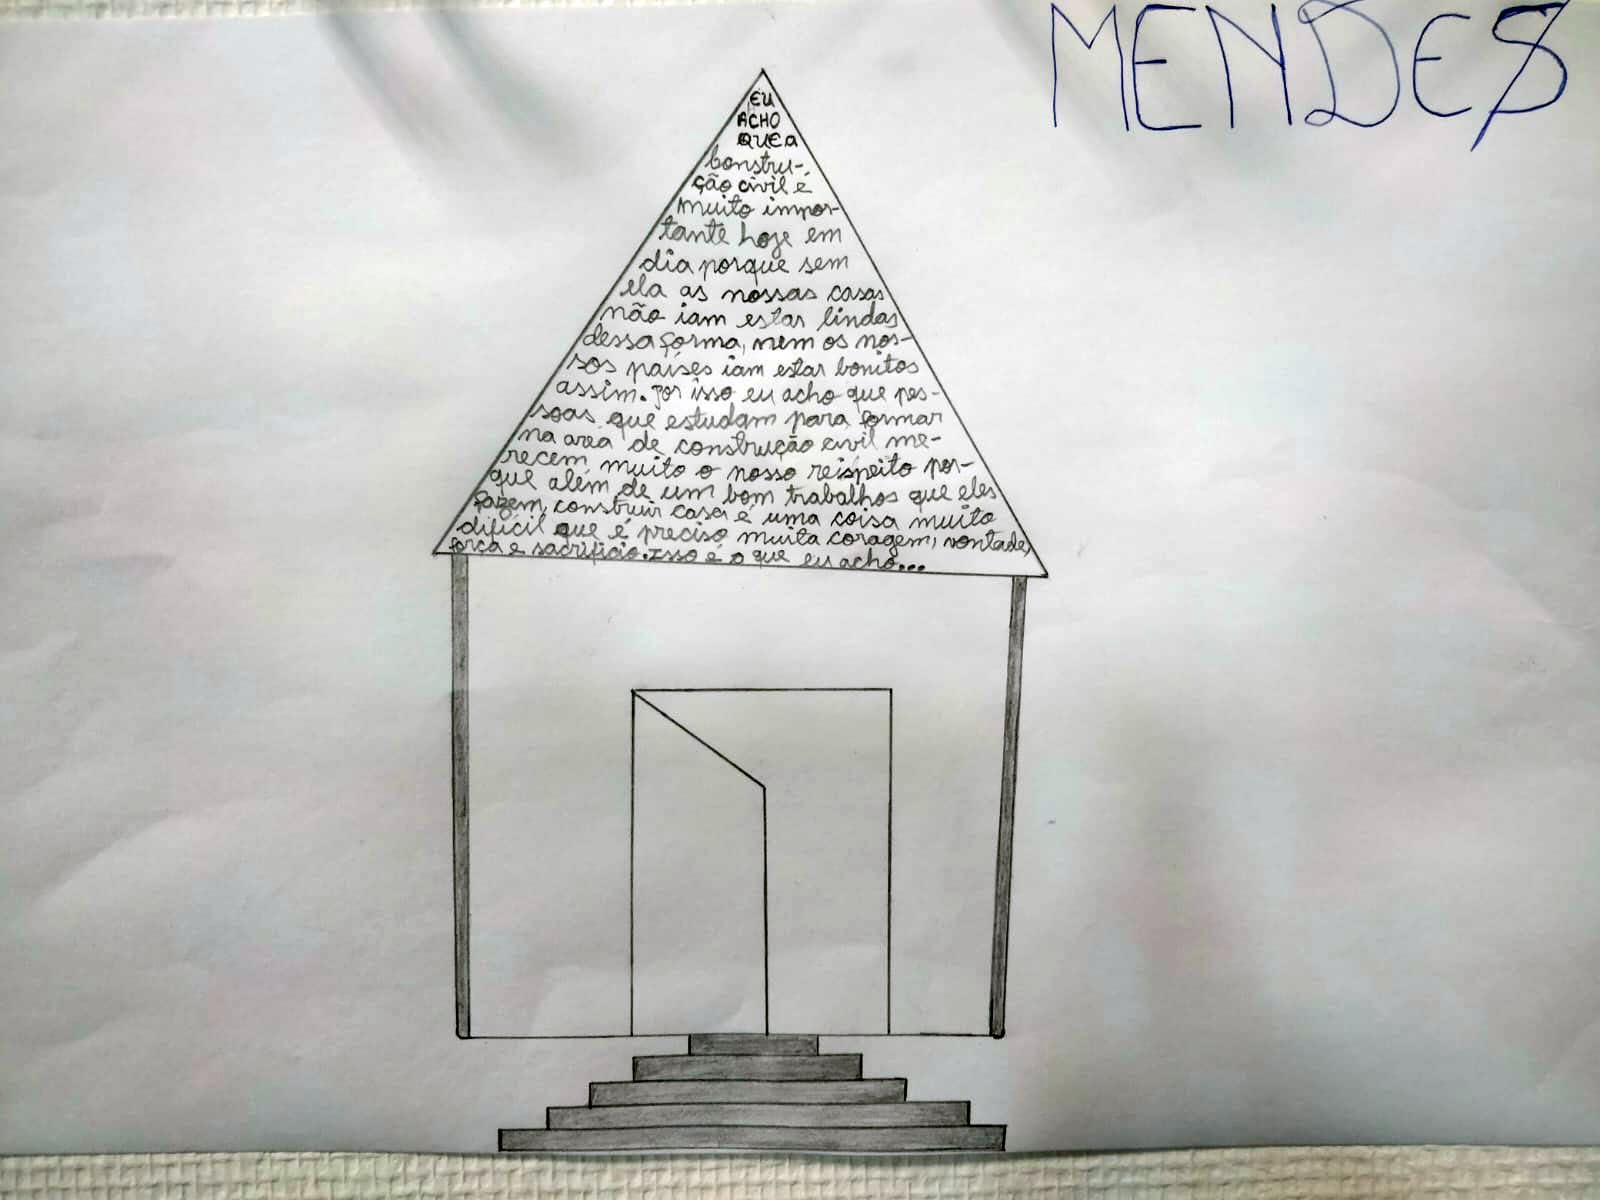 MENDES
EU
ACHO
QUE A
constru-
ção civil é
muito impor-
tante hoje em
dia porque sem
ela as nossas casas
não iam estar lindas
dessa forma, nem os nos-
sos países iam estar bonitos
assim. Por isso eu acho que pes-
soas que estudam para formar
na area de construção civil me-
recem muito o nosso reispeito por-
que além de um bom trabalhos que eles
fazem, construir casa é uma coisa muito
dificil que é preciso muita coragem, vontade,
força e sacrificio. Isso é o que eu acho...